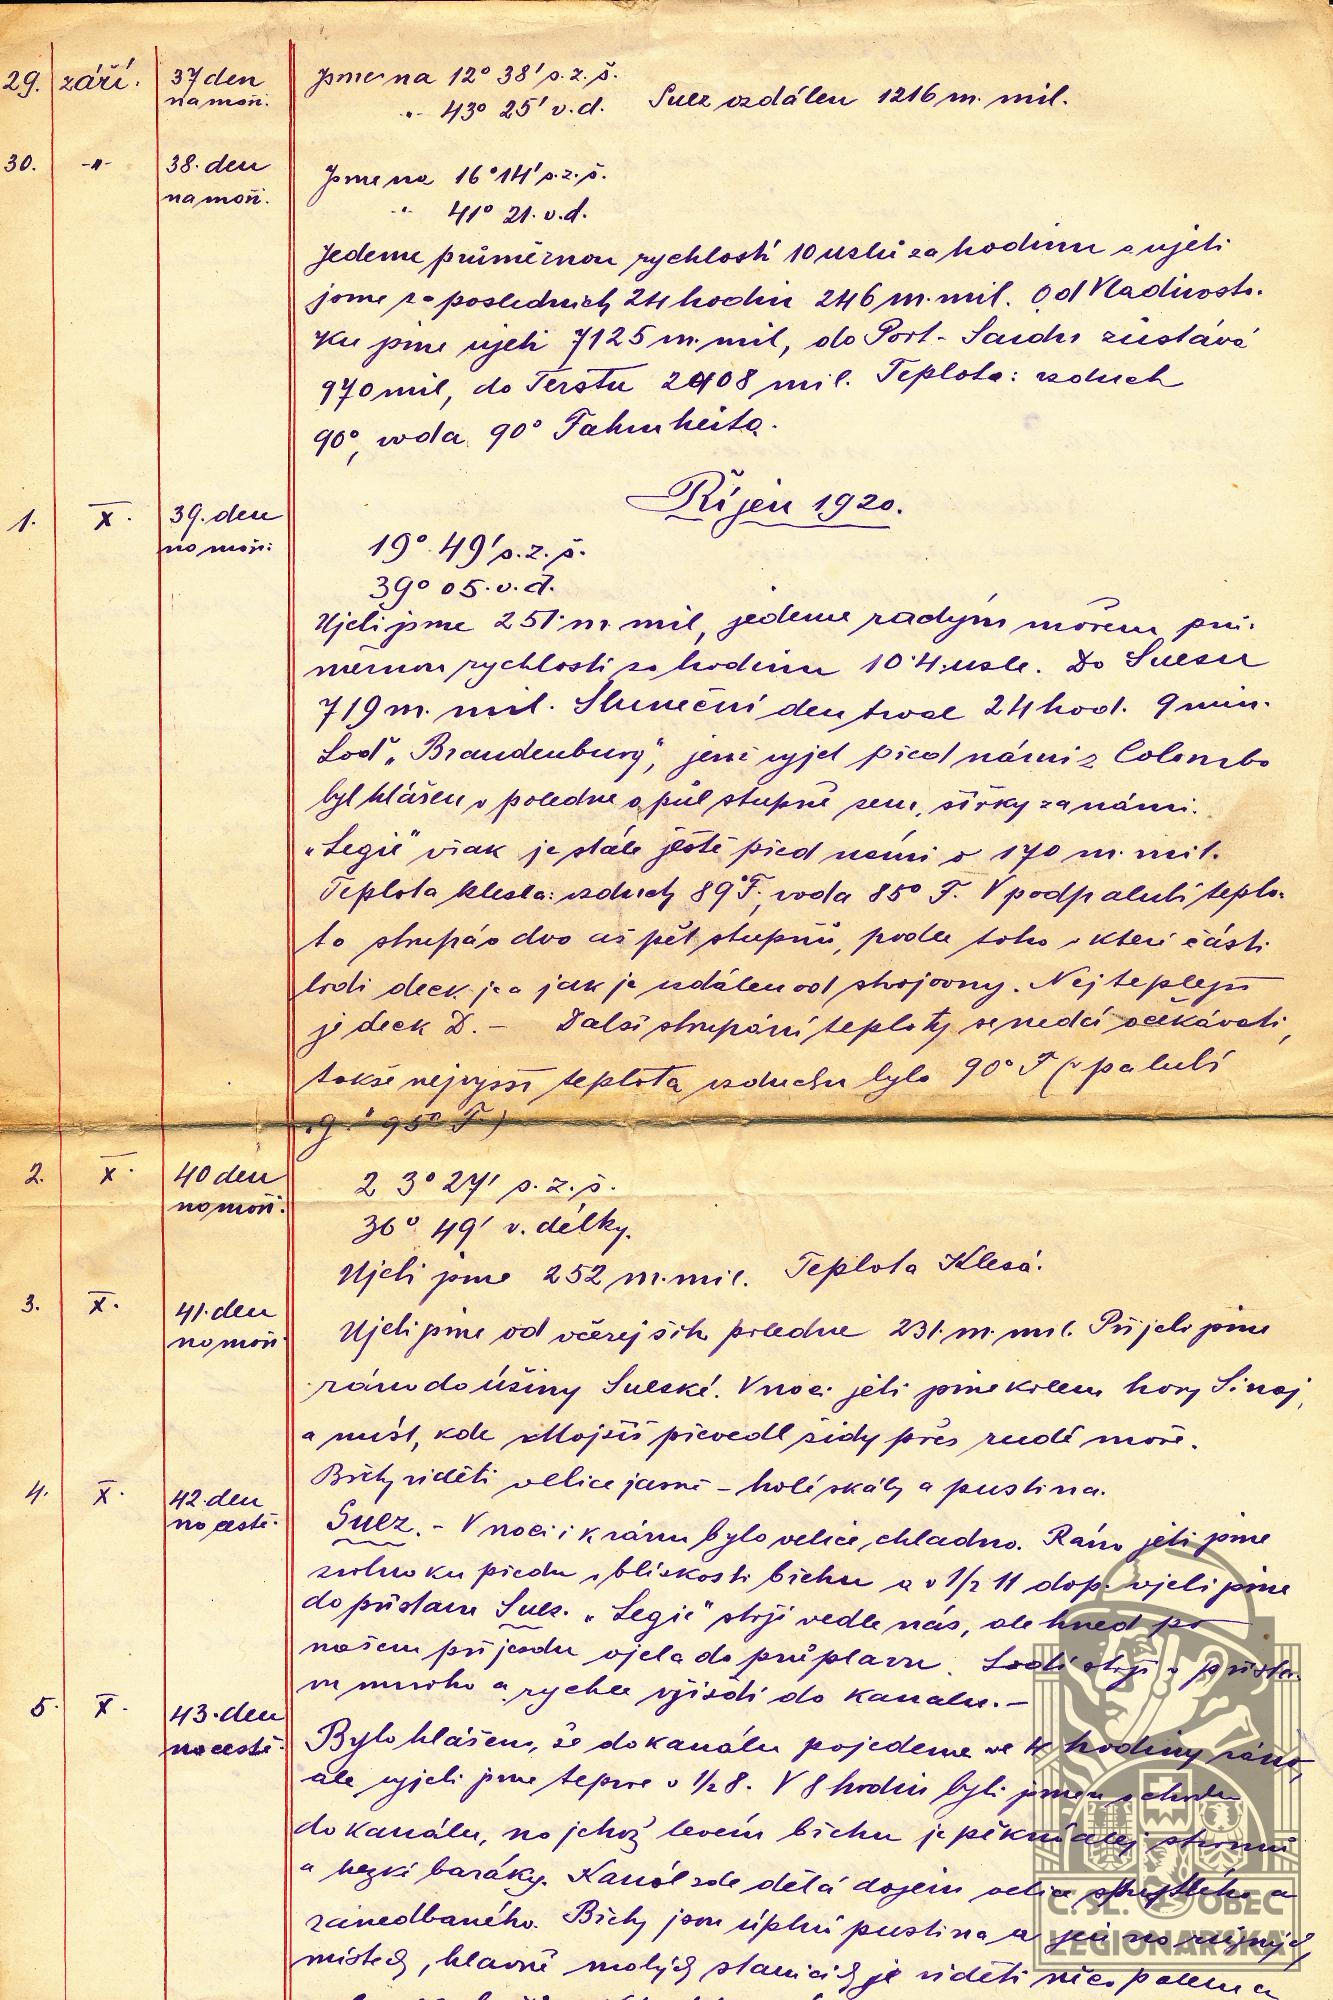 29. září. 37 den Jsme na 12° 38' s.z.š.
na moři. -"- 43° 25' v.d. Suez vzdálen 1216 m. mil.
30. -"- 38. den Jsme na 16° 14' s.z.š.
na moři. -"- 41° 21. v.d.
Jedeme průměrnou rychlostí 10 uzlů za hodinu a ujeli
jsme za posledních 24 hodin 246 m. mil. Od Vladivosto-
ku jsme ujeli 7125 m. mil, do Port-Saidu zůstává
970 mil, do Terstu 2408 mil. Teplota: vzduch
90°, voda 90° Fahrnheita.
Říjen 1920.
1. X. 39. den 19° 49' s.z.š.
na moři: 39° 05. v.d.
Ujeli jsme 251. m. mil, jedeme rudým mořem prů-
měrnou rychlostí za hodinu 10.4. uzle. Do Suezu
719 m. mil. Sluneční den trval 24 hod. 9 min.
Loď „Brandenburg“, jenž vyjel před námi z Colombo
byl hlášen v poledne o půl stupně sev. šířky za námi.
„Legie“ však je stále ještě před námi o 170 m. mil.
Teplota klesla: vzduch 89°F, voda 85° F. V podpalubí teplo-
ta stoupá o dva až pět stupňů, podle toho v které části
lodi deck je a jak je vzdálen od strojovny. Nejteplejší
je deck D. – Další stoupání teploty se nedá očekávati,
takže nejvyšší teplota vzduchu byla 90° F (v palubí
„g.“ 95° F.)
2. X. 40 den 23° 27' s.z.š.
na moři. 36° 49' v. délky.
Ujeli jsme 252 m. mil. Teplota klesá.
3. X. 41. den Ujeli jsme od včerejšího poledne 231. m. mil. Přijeli jsme
na moři ráno do úžiny Suezké. V noci jeli jsme kolem hory Sinaj,
a míst, kde Mojžíš převedl židy přes rudé moře.
Břehy viděti velice jasně – holé skály a pustina.
4. X. 42. den Suez. – V noci i k ránu bylo velice chladno. Ráno jeli jsme
na cestě. zvolna ku předu v blízkosti břehu a v 1/2 11 dop. vjeli jsme
do přístavu Suez. „Legie“ stojí vedle nás, ale hned po
našem příjezdu vjela do průplavu. Lodí stojí v přísta-
vu mnoho a rychle vjíždí do kanalu. –
5. X. 43. den Bylo hlášeno, že do kanálu pojedeme ve hodiny ráno,
na cestě. ale vyjeli jsme teprve v 1/2 8. V 8 hodin byli jsme u vchodu
do kanálu, na jehož levém břehu je pěkná alej stromů
a hezké baráky. Kanál zde dělá dojem velice a
zanedbaného. Břehy jsou úplná pustina a jen na různých
místech, hlavně malých stanicích je viděti něco palem a
Č.SL. OBEC
LEGIONÁŘSKÁ